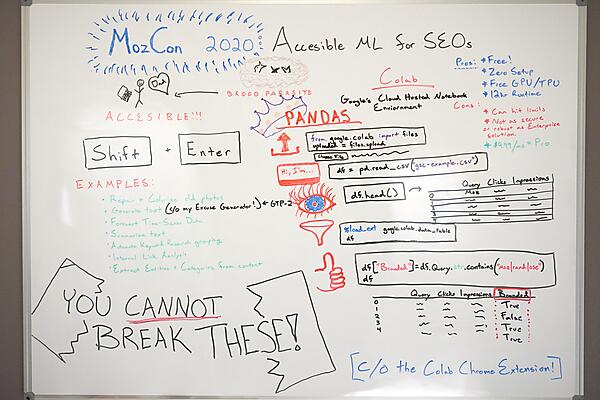 MozCon 2020
Accesible ML for SEOs
Dad
BROOD PARASITE
ACCESIBLE!!!
Shift + Enter
EXAMPLES:
• Repair + Colorize old photos
• Generate text (c/o my Excuse Generator!) ← GTP-2
• Forecast Time Series Data
• Summarize text
• Advanced Keyword Research grouping
• Internal Link Analysis
• Extract Entities + Categories from content
YOU CANNOT
BREAK THESE!
Colab
Google's Cloud Hosted Notebook
Enviornment
Pros:
* Free!
* Zero Setup
* Free GPU/TPU
* 12hr Runtime
Cons:
* Can hit limits
* Not as secure
or robust as Enterprise
solution.
* $9.99/mo = Pro
PANDAS
from google.colab import files
uploaded = files.upload
Choose File
Hi, I'm...
df = pd.read_csv("gsc-example.csv")
df.head()
Query Clicks Impressions
Moz
0
1
2
3
4
%load_ext google.colab.data_table
df
df["Branded"]=df.Query.str.contains("moz|rand|ose")
df
Query Clicks Impressions Branded
0 True
1 False
2 True
3 True
4
[c/o the Colab Chrome Extension!]